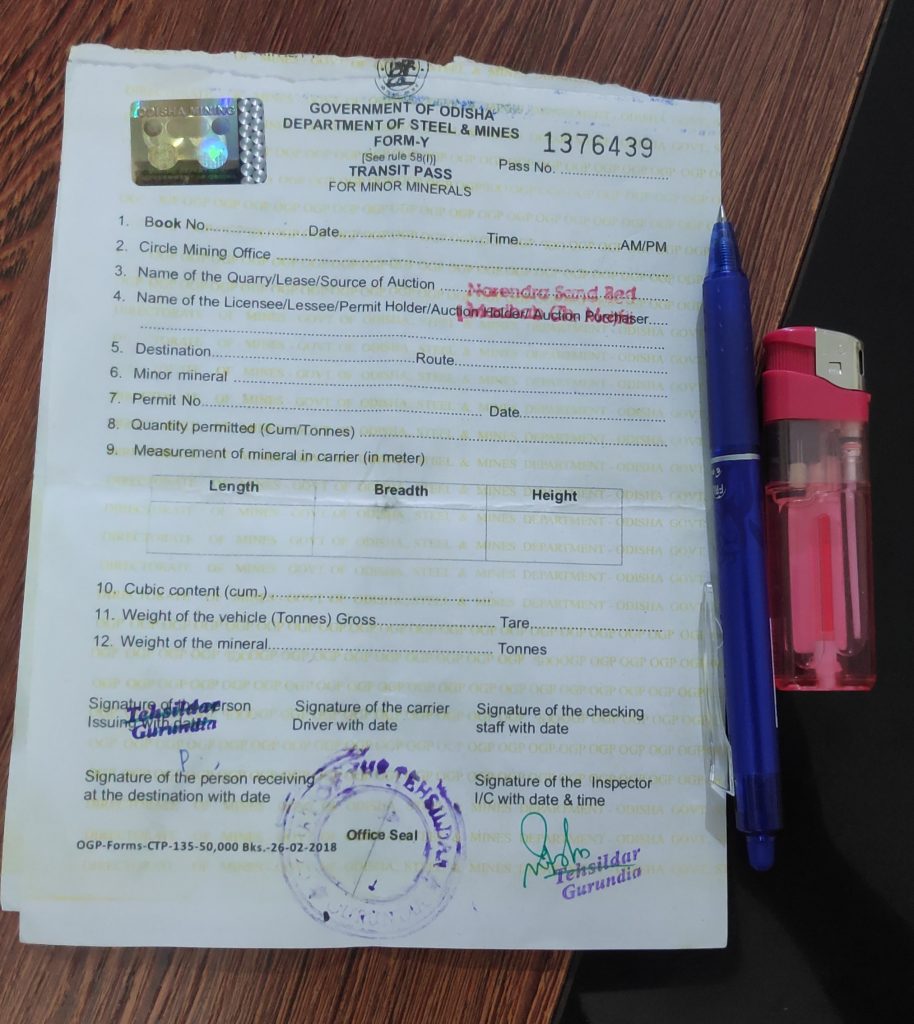 ODISHA MINING
GOVERNMENT OF ODISHA
DEPARTMENT OF STEEL & MINES
FORM-Y
[See rule 58(I)]
TRANSIT PASS
FOR MINOR MINERALS
1376439
Pass No. ........................
1. Book No..........................Date....................................Time..........................AM/PM
2. Circle Mining Office ..........................................................................
3. Name of the Quarry/Lease/Source of Auction ..........................................
Narendra Sand Bed
4. Name of the Licensee/Lessee/Permit Holder/Auction Holder/ Auction Purchaser....
..........................................................................
5. Destination..................................................Route..................................................
6. Minor mineral ..........................................................................
7. Permit No..................................................................... Date....................................
8. Quantity permitted (Cum/Tonnes) ..........................................................
9. Measurement of mineral in carrier (in meter)
Length Breadth Height
10. Cubic content (cum.) ..........................................................
11. Weight of the vehicle (Tonnes) Gross.............................. Tare..............................
12. Weight of the mineral.......................................................... Tonnes
Signature of the person Issuing with date
Tehsildar
Gurundia
Signature of the carrier
Driver with date
Signature of the checking
staff with date
Signature of the person receiving
at the destination with date
THE TEHSILDAR
Office Seal
Signature of the Inspector
I/C with date & time
Tehsildar
Gurundia
OGP-Forms-CTP-135-50,000 Bks.-26-02-2018
DIRECTORATE OF MINES GOVT OF ODISHA, STEEL & MINES DEPARTMENT - ODISHA GOVT.
OGP OGP OGP OGP OGP OGP